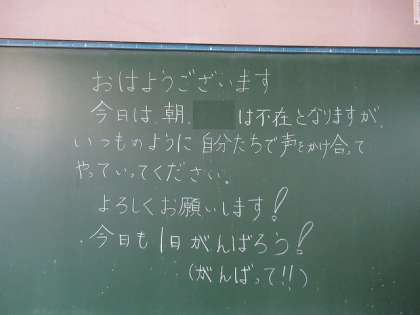 おはようございます
今日は、朝、は不在となりますが、
いつものように自分たちで声をかけ合って
やっていってください。
よろしくお願いします!
今日も1日がんばろう!
(がんばって!!)